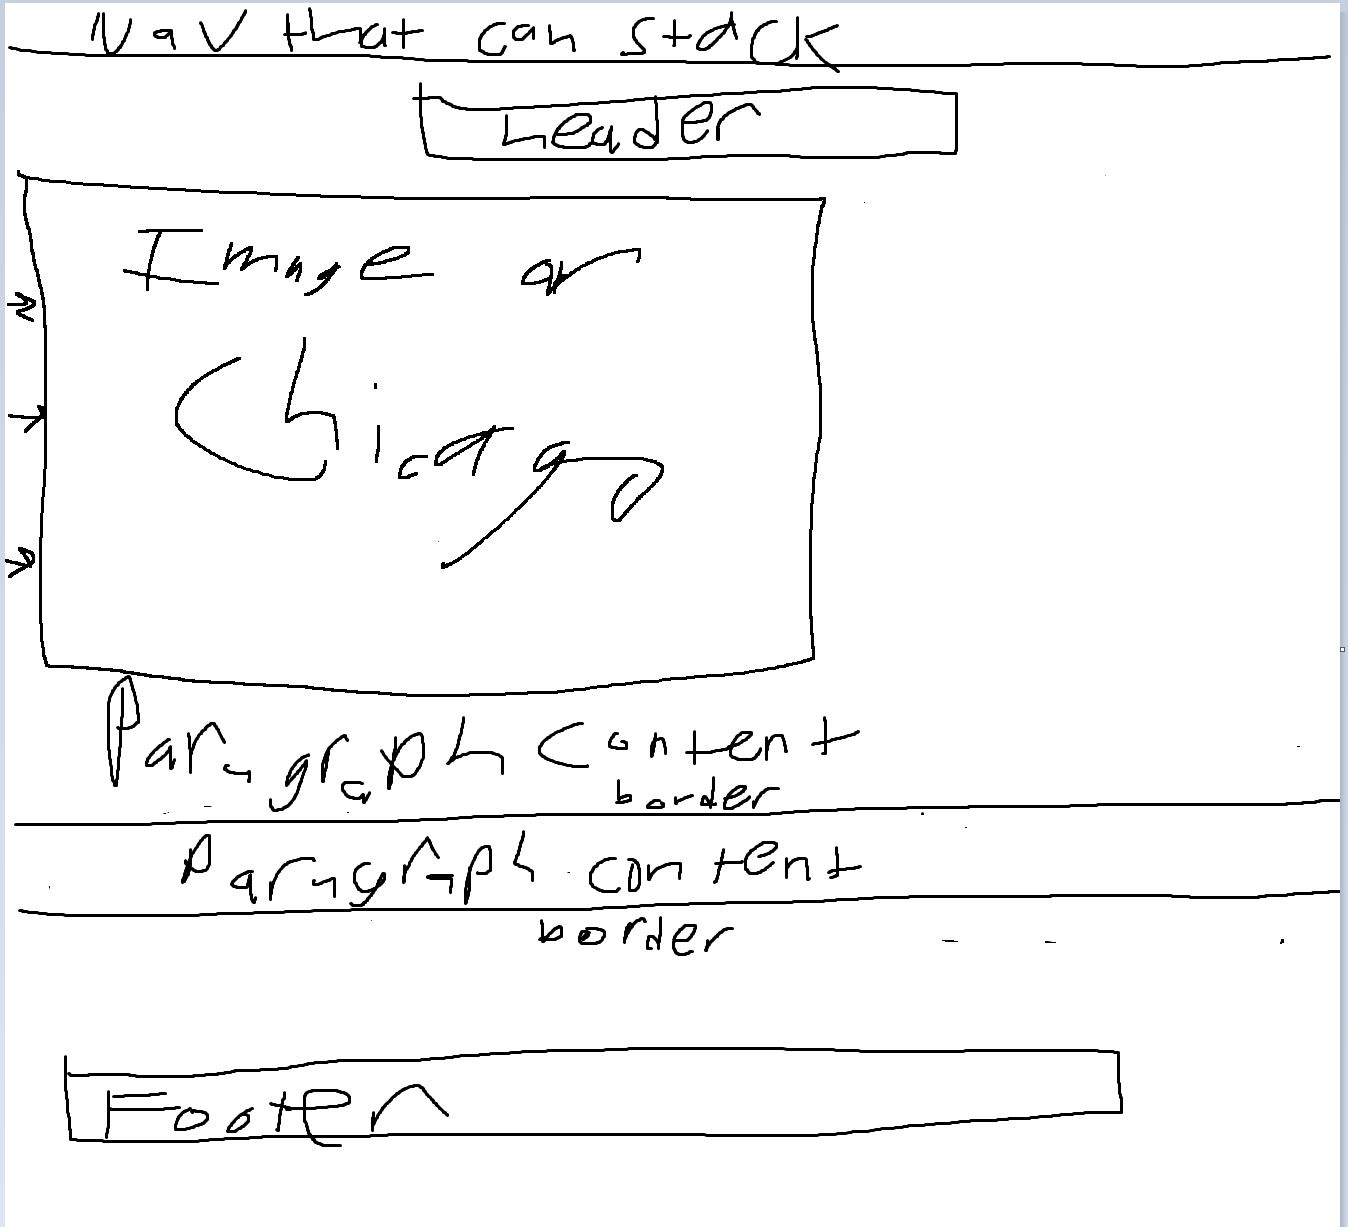 Nav that can stack
header
Image or
Chicago
Paragraph content
border
Paragraph content
border
Footer